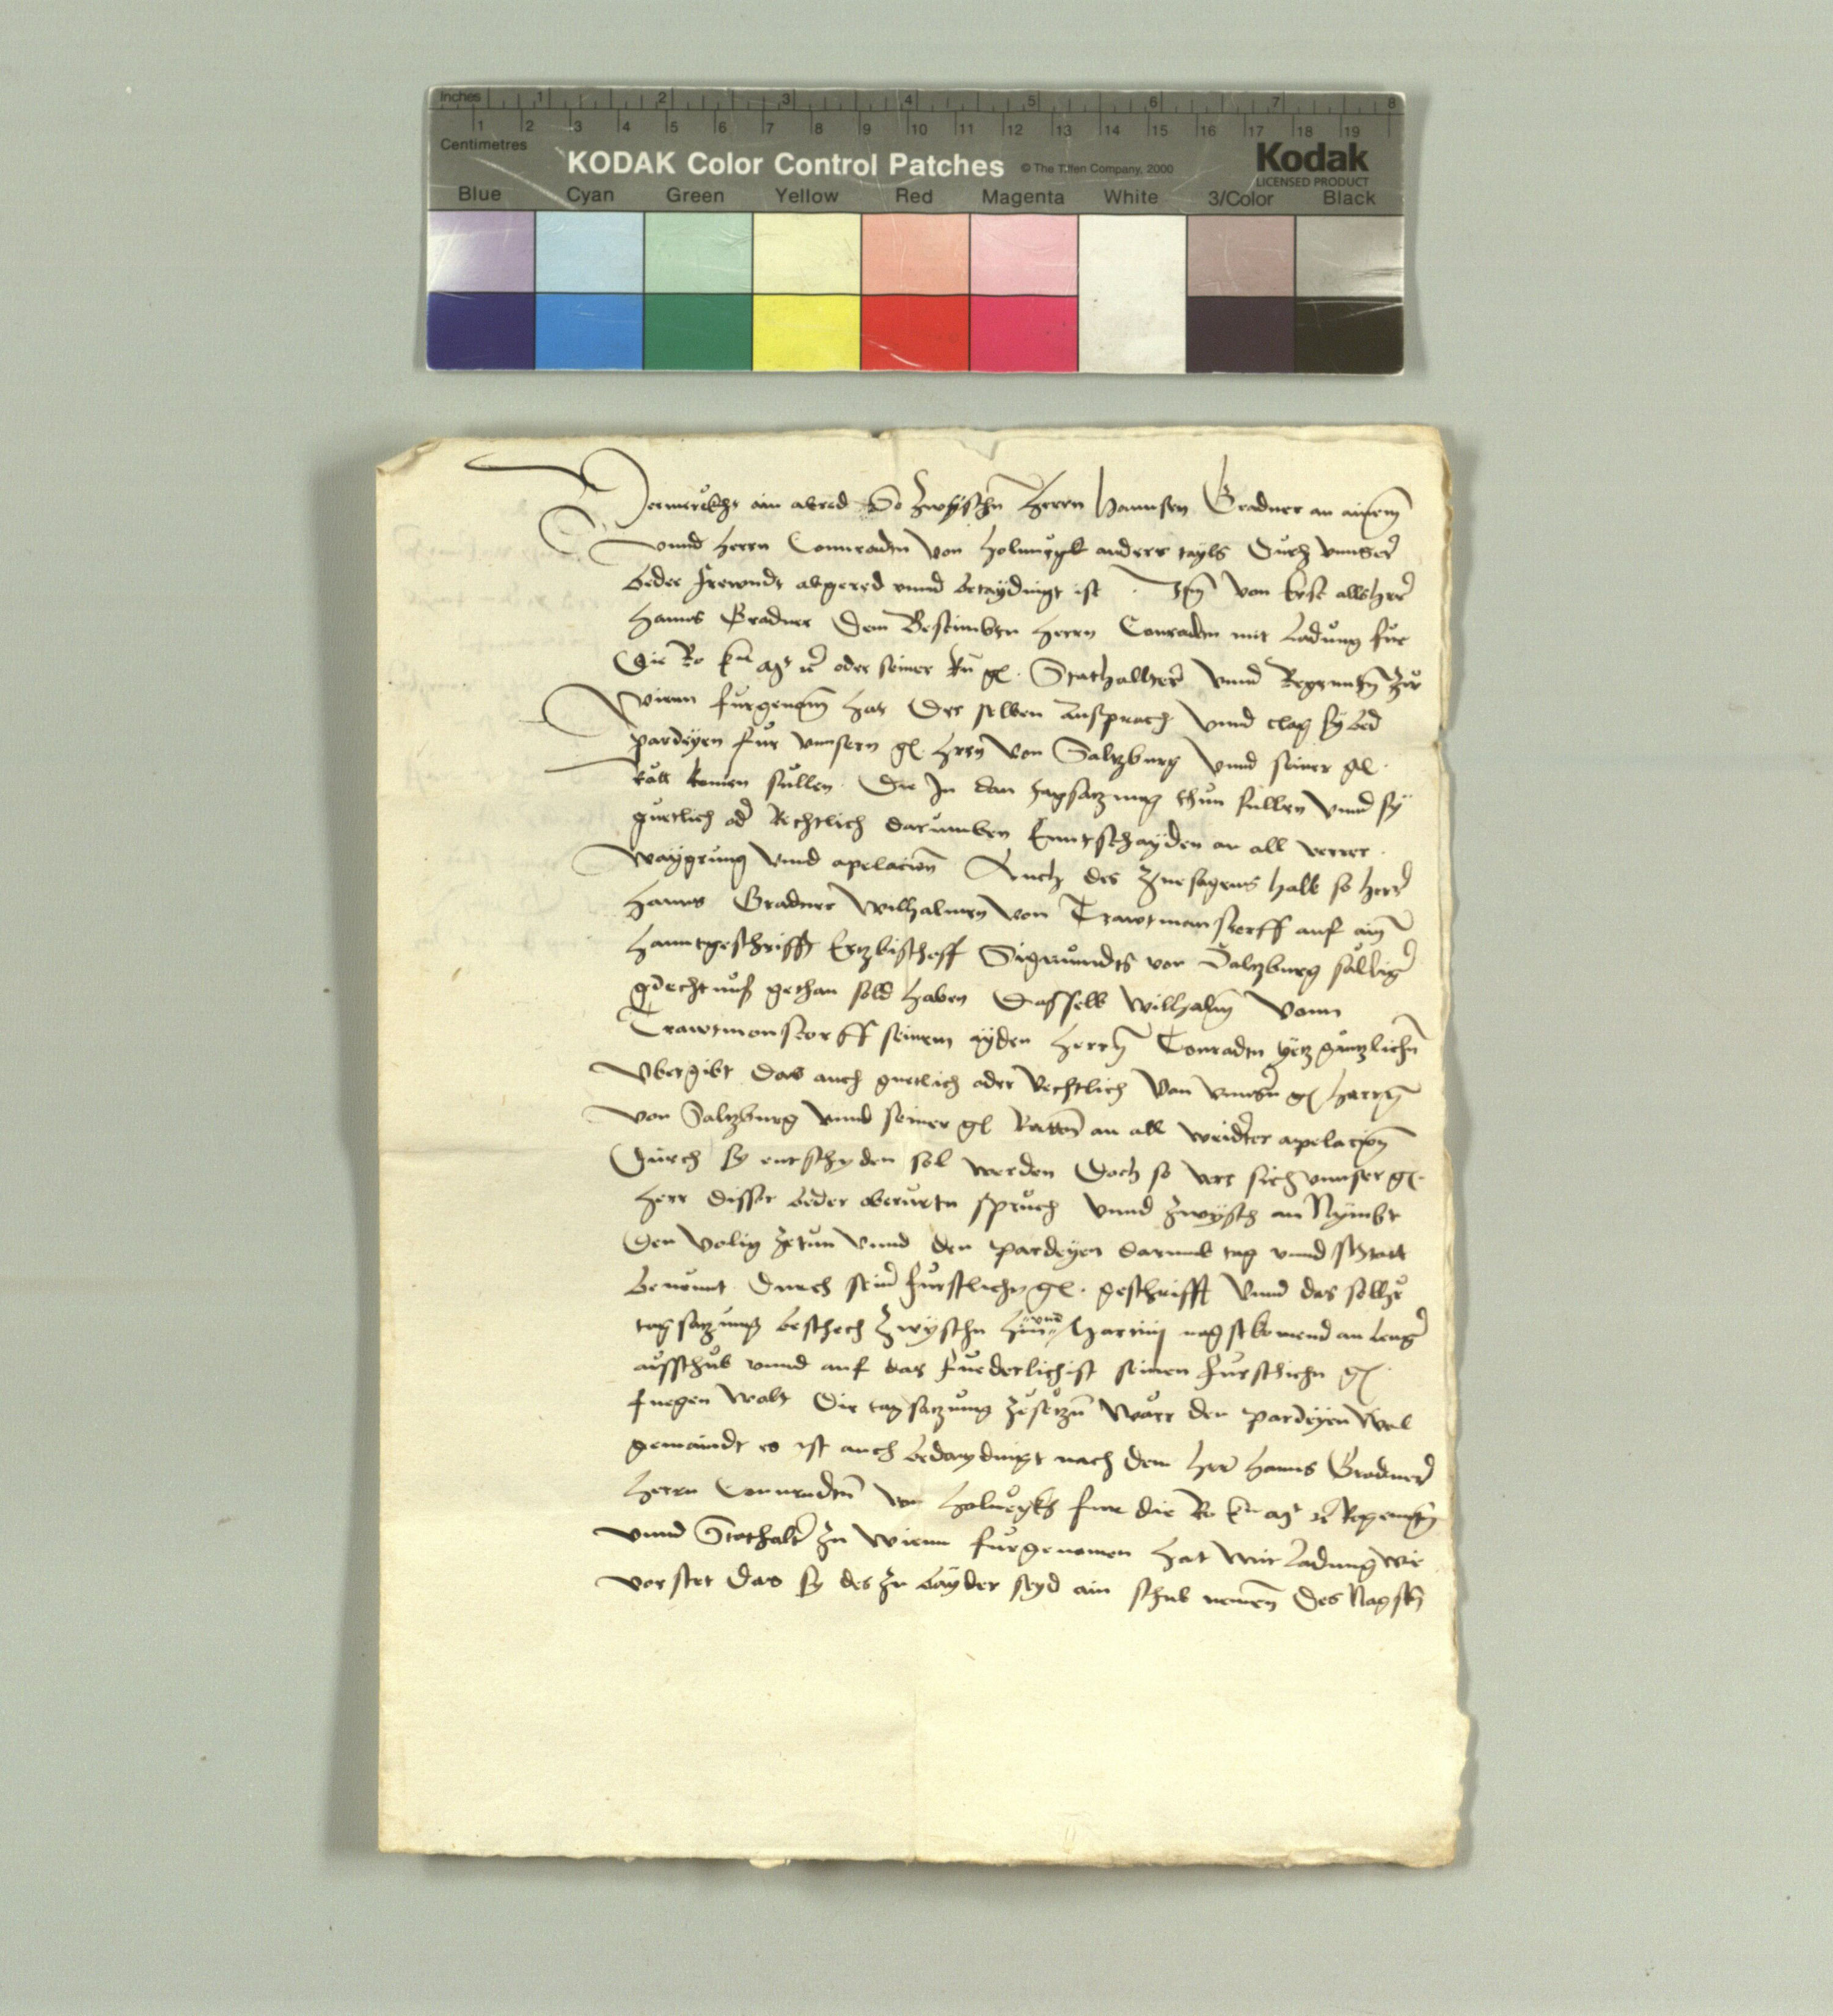 Inches 1 2 3 4 5 6 7 8
Centimetres 1 2 3 4 5 6 7 8 9 10 11 12 13 14 15 16 17 18 19
KODAK Color Control Patches © The Tiffen Company, 2000 Kodak
LICENSED PRODUCT
Blue Cyan Green Yellow Red Magenta White 3/Color Black
Vermerckht ain abred So zwyschn herrn Hannsen Gradner an ainem
vnnd herrn Connradtn von holnegk anders tayls Durch vnnser
beder frewndt abgered vnnd betaydingt ist von Erst alls herr
Hanns Gradner Dem Bestimbtn herrn Conradtn mit Ladung fur
Die Ro oder seiner gl. Stathallter vnnd Regenntn zu
wienn furgenomen hat Der selben anspruch vnnd clag sy bed
pardeyen fur vnnsern gl. hern von Saltzburg vnnd seiner gl.
komen sullen. Die In dan tagsatzung thun sullen vnnd sy
guetlich oder Rechtlich darumben Enntschayden an all verrer
waygrung vnnd apelacion Auch des zuesagens halb so herr
Hanns Gradner Wilhalmen von Trawtmanstorff auf ain
hanntgeschrifft Ertzbischoff Sigmundts von Saltzburg sålliger
gedechtnuss gethan sold haben Dasselb Wilhalm vonn
Trawtmonstorff seinem ayden herrn Conradtn yetz gantzlichn
vbergibt das auch guetlich oder Rechtlich von vnnsern gl herrn
von Saltzburg vnnd seiner gl Rattn an all weidter apelacion
Durch sy entschyden sol werden Doch so verr sich vnnser gl.
herr disser beder oberurtn spruch vnnd an Nymbt
Den zetun vnnd den pardeyen darumb tag vnnd stat
benennt Durch seiner furstlichn gl. geschrifft vnnd das sollhe
tagsatzung beschech zwyschn hinn vnd nagstkomend an lenger
aufschub vnnd auf das furderlichist seinen furstlichn gl
fuegen wolt Die tagsatzung zesetzn Wår den pardeyen wol
gemaindt es ist auch bedaydingt nach dem herr Hanns Gradner
herrn Connradtn von holnegkh fur die Ro Regenntn
vnnd Stathalter zu wienn furgenomen hat mit Ladung wie
vorstet das sy des zu bayder seyd ain schub nemen Des Nagstn